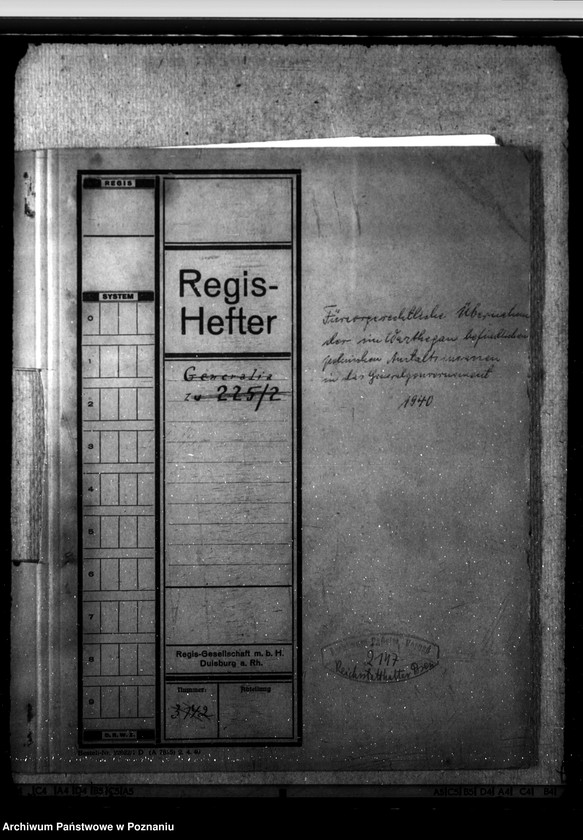 REGIS
SYSTEM
0
1
2
3
4
5
6
7
8
9
Regis-
Hefter
Generalia
zu 225/2
Regis-Gesellschaft m. b. H.
Duisburg a. Rh.
Nummer:
Abteilung
Fürsorgerechtliche Übernahme
der im Warthegau befindlichen
polnischen Anstaltsinsassen
in das Generalgouvernement
1940
2147
Reichsstatthalter
C4 A4 D4 B5 C5 A5
A5 C5 B5 D4 A4 C4 B4
Archiwum Państwowe w Poznaniu